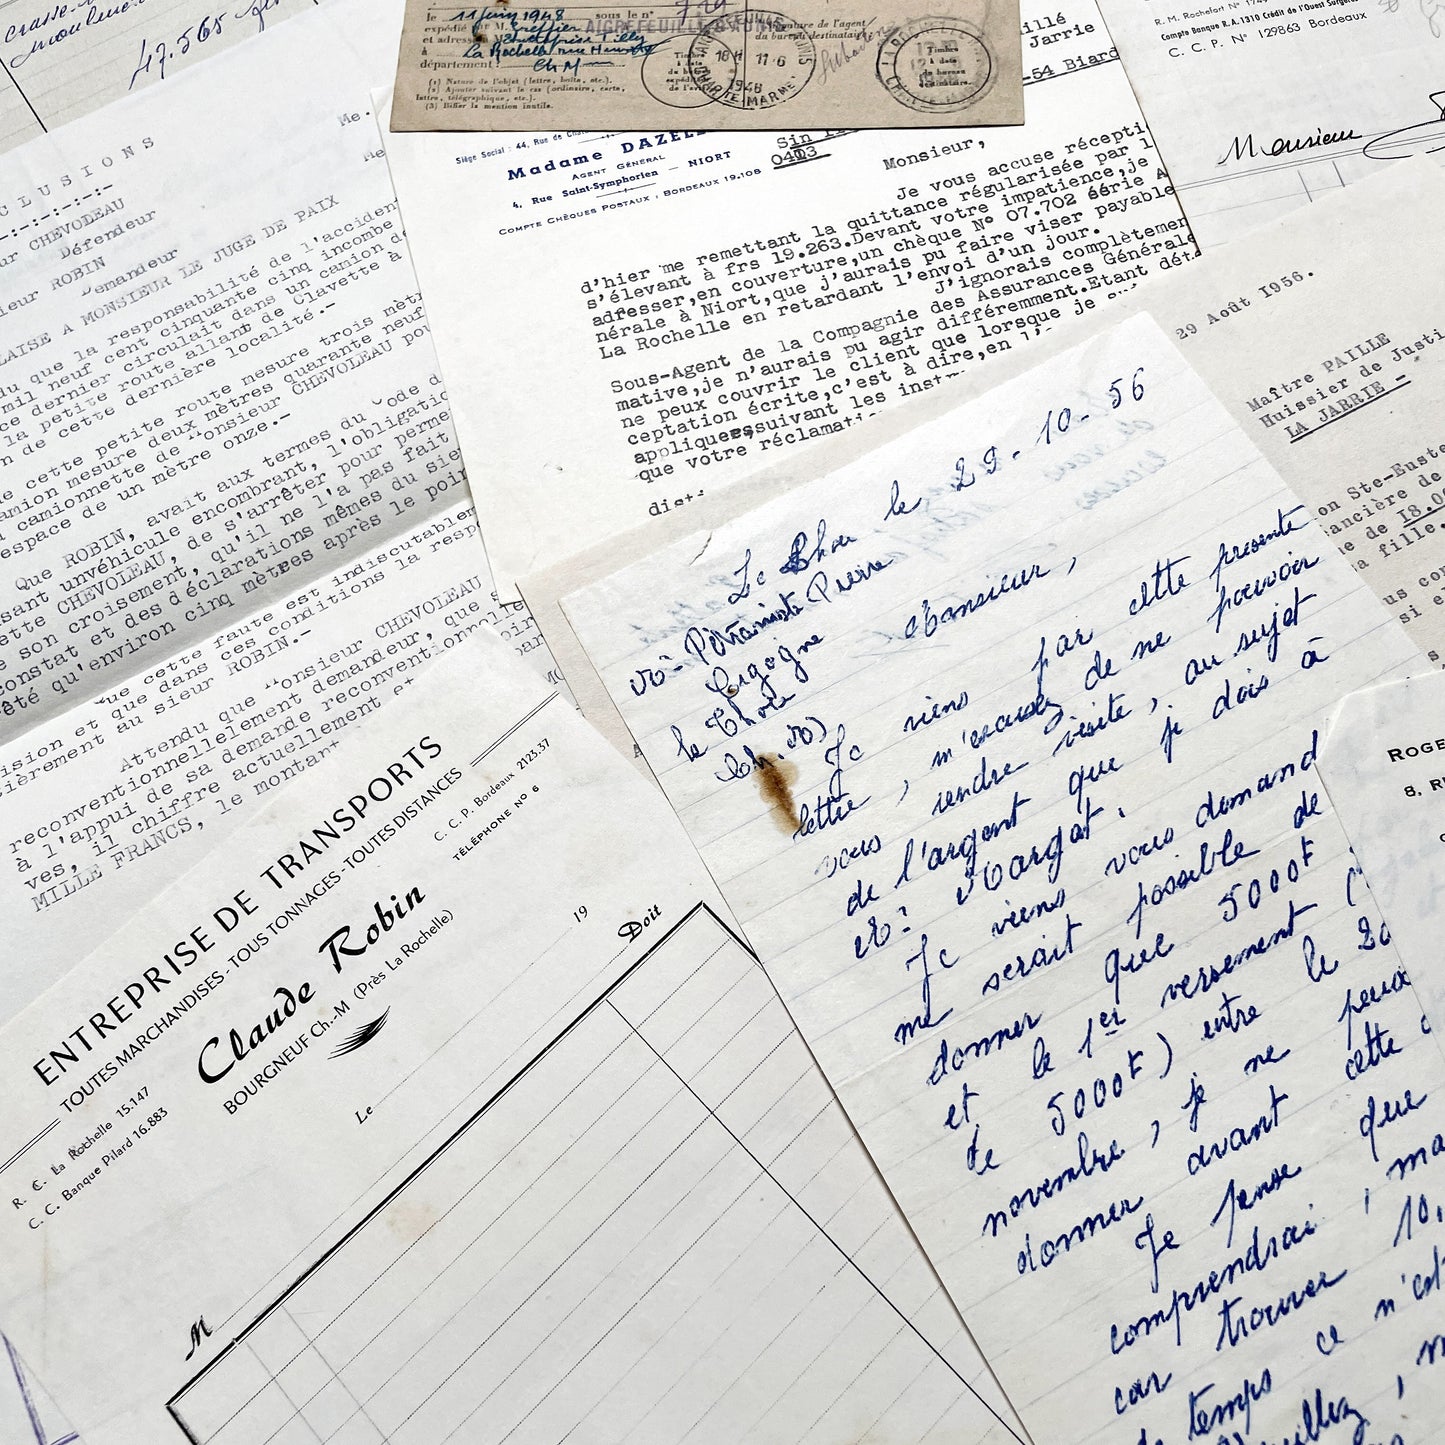 47.565
le 11 juin 1948 sous le n° 729
AIGREFEUILLE D'AUNIS
expédié
et adressé M
La Rochelle rue
département :
Ch M
(1) Nature de l'objet (lettre, boîte, etc.).
(2) Ajouter suivant le cas (ordinaire, carte,
lettre, télégraphique, etc.).
(3) Biffer la mention inutile.
Timbre
à date
du bureau
18 H 11-6
1948
CHARTE MARME
Signature de l'agent
du bureau destinataire
Timbre
à date
du bureau
destinataire.
R. M. Rochefort N°
Compte Banque R.A. 1310 Crédit de l'Ouest Surgères
C. C. P. N° 129863 Bordeaux
Monsieur
illé
Jarrie
-54 Biard
CLUSIONS
-:-:-:-:-:-
ur CHEVODEAU
Défendeur
sieur ROBIN
Demandeur
LAISE A MONSIEUR LE JUGE DE PAIX
du que la responsabilité de l'acciden
mil neuf cent cinquante cinq incombe
ce dernier circulait dans un camion de
la petite route allant de Clavette à
n de cette dernière localité.-
e cette petite route mesure trois mètr
amion mesure deux mètres quarante neuf
camionnette de Monsieur CHEVOLEAU pou
espace de un mètre onze.-
Que ROBIN, avait aux termes du Code d
sant unvéhicule encombrant, l'obligatio
ette CHEVOLEAU, de s'arrêter pour perme
e son croisement, qu'il ne l'a pas fait
constat et des déclarations mêmes du sie
été qu'environ cinq mètres après le poin
que cette faute est indiscutablem
ision et que dans ces conditions la resp
tièrement au sieur ROBIN.-
Attendu que Monsieur CHEVOLEAU
reconventionnellement demandeur, que s
à l'appui de sa demande reconventionnelle
ves, il chiffre actuellement et
MILLE FRANCS, le montant
Siège Social : 44, Rue de
Madame DAZEL
AGENT GÉNÉRAL
4, Rue Saint-Symphorien — NIORT
COMPTE CHÈQUES POSTAUX : BORDEAUX 19.108
Monsieur,
Je vous accuse récepti
d'hier me remettant la quittance régularisée par l
s'élevant à frs 19.263.Devant votre impatience,je
adresser,en couverture,un chèque N° 07.702 série A
nérale à Niort,que j'aurais pu faire viser payable
La Rochelle en retardant l'envoi d'un jour.
J'ignorais complètemen
Sous-Agent de la Compagnie des Assurances Générale
mative,je n'aurais pu agir différemment.Etant dét
ne peux couvrir le client que lorsque je
ceptation écrite,c'est à dire,en
appliquer,suivant les inst
que votre réclamati
29 Août 1956.
Maître PAILLE
Huissier de Justi
LA JARRIE -
on Ste-Euste
ancière de
e de 18.0
a fille,
us con
si el
ROGE
8, R
Le Thou le 29-10-56
Pétrauiste Pierre
Cigogne
le Thou
Ch. M)
Monsieur,
Je viens par cette presente
lettre, m'excusez de ne pouvoir
vous rendre visite, au sujet
de l'argent que je dois à
Mr Margat.
Je viens vous demand
me serait possible de
donner que 5000F
et le 1er versement (
de 5000F) entre le 20
novembre, je ne peux
donner avant cette
Je pense que
comprendrai, ma
car trouver 10.
temps ce n'est
ENTREPRISE DE TRANSPORTS
TOUTES MARCHANDISES - TOUS TONNAGES - TOUTES DISTANCES
Claude Robin
BOURGNEUF Ch.-M (Près La Rochelle)
R. C. La Rochelle 15.147
C. C. Banque Pilard 16.883
C. C. P. Bordeaux 2123.37
TÉLÉPHONE N° 6
Le
19
M
Doit